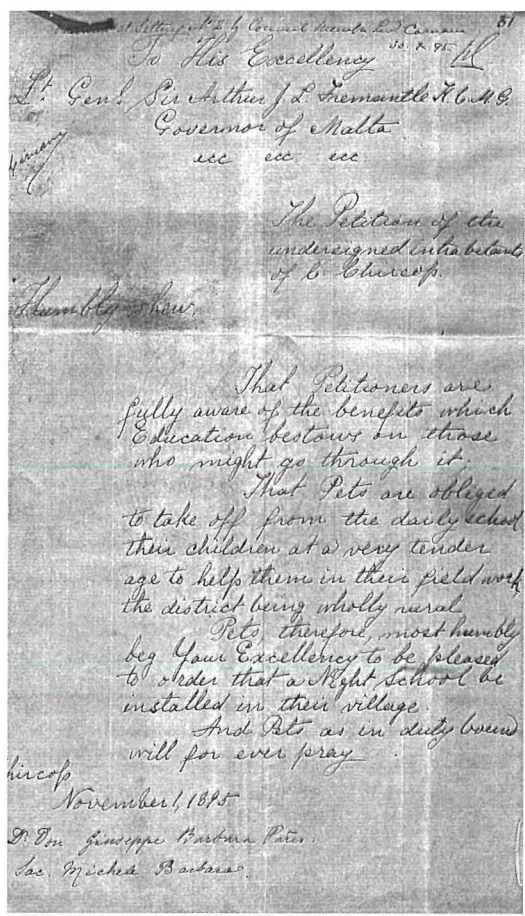 at Sitting No 2 by Council
30. X. 95
31
To His Excellency
Lt. Genl. Sir Arthur J L Fremantle K C M G
Governor of Malta
ecc ecc ecc
The Petition of the
undersigned inhabitants
of C. Chircop.
Humbly shew.
That Petitioners are
fully aware of the benefits which
Education bestows on those
who might go through it;
That Pets are obliged
to take off from the daily school
their children at a very tender
age to help them in their field work
the district being wholly rural
Pets, therefore, most humbly
beg Your Excellency to be pleased
to order that a Night School be
installed in their village.
And Pets as in duty bound
will for ever pray.
hircop
November 1, 1895
Dr. Don Giuseppe Barbara
Sac. Michele Barbara.